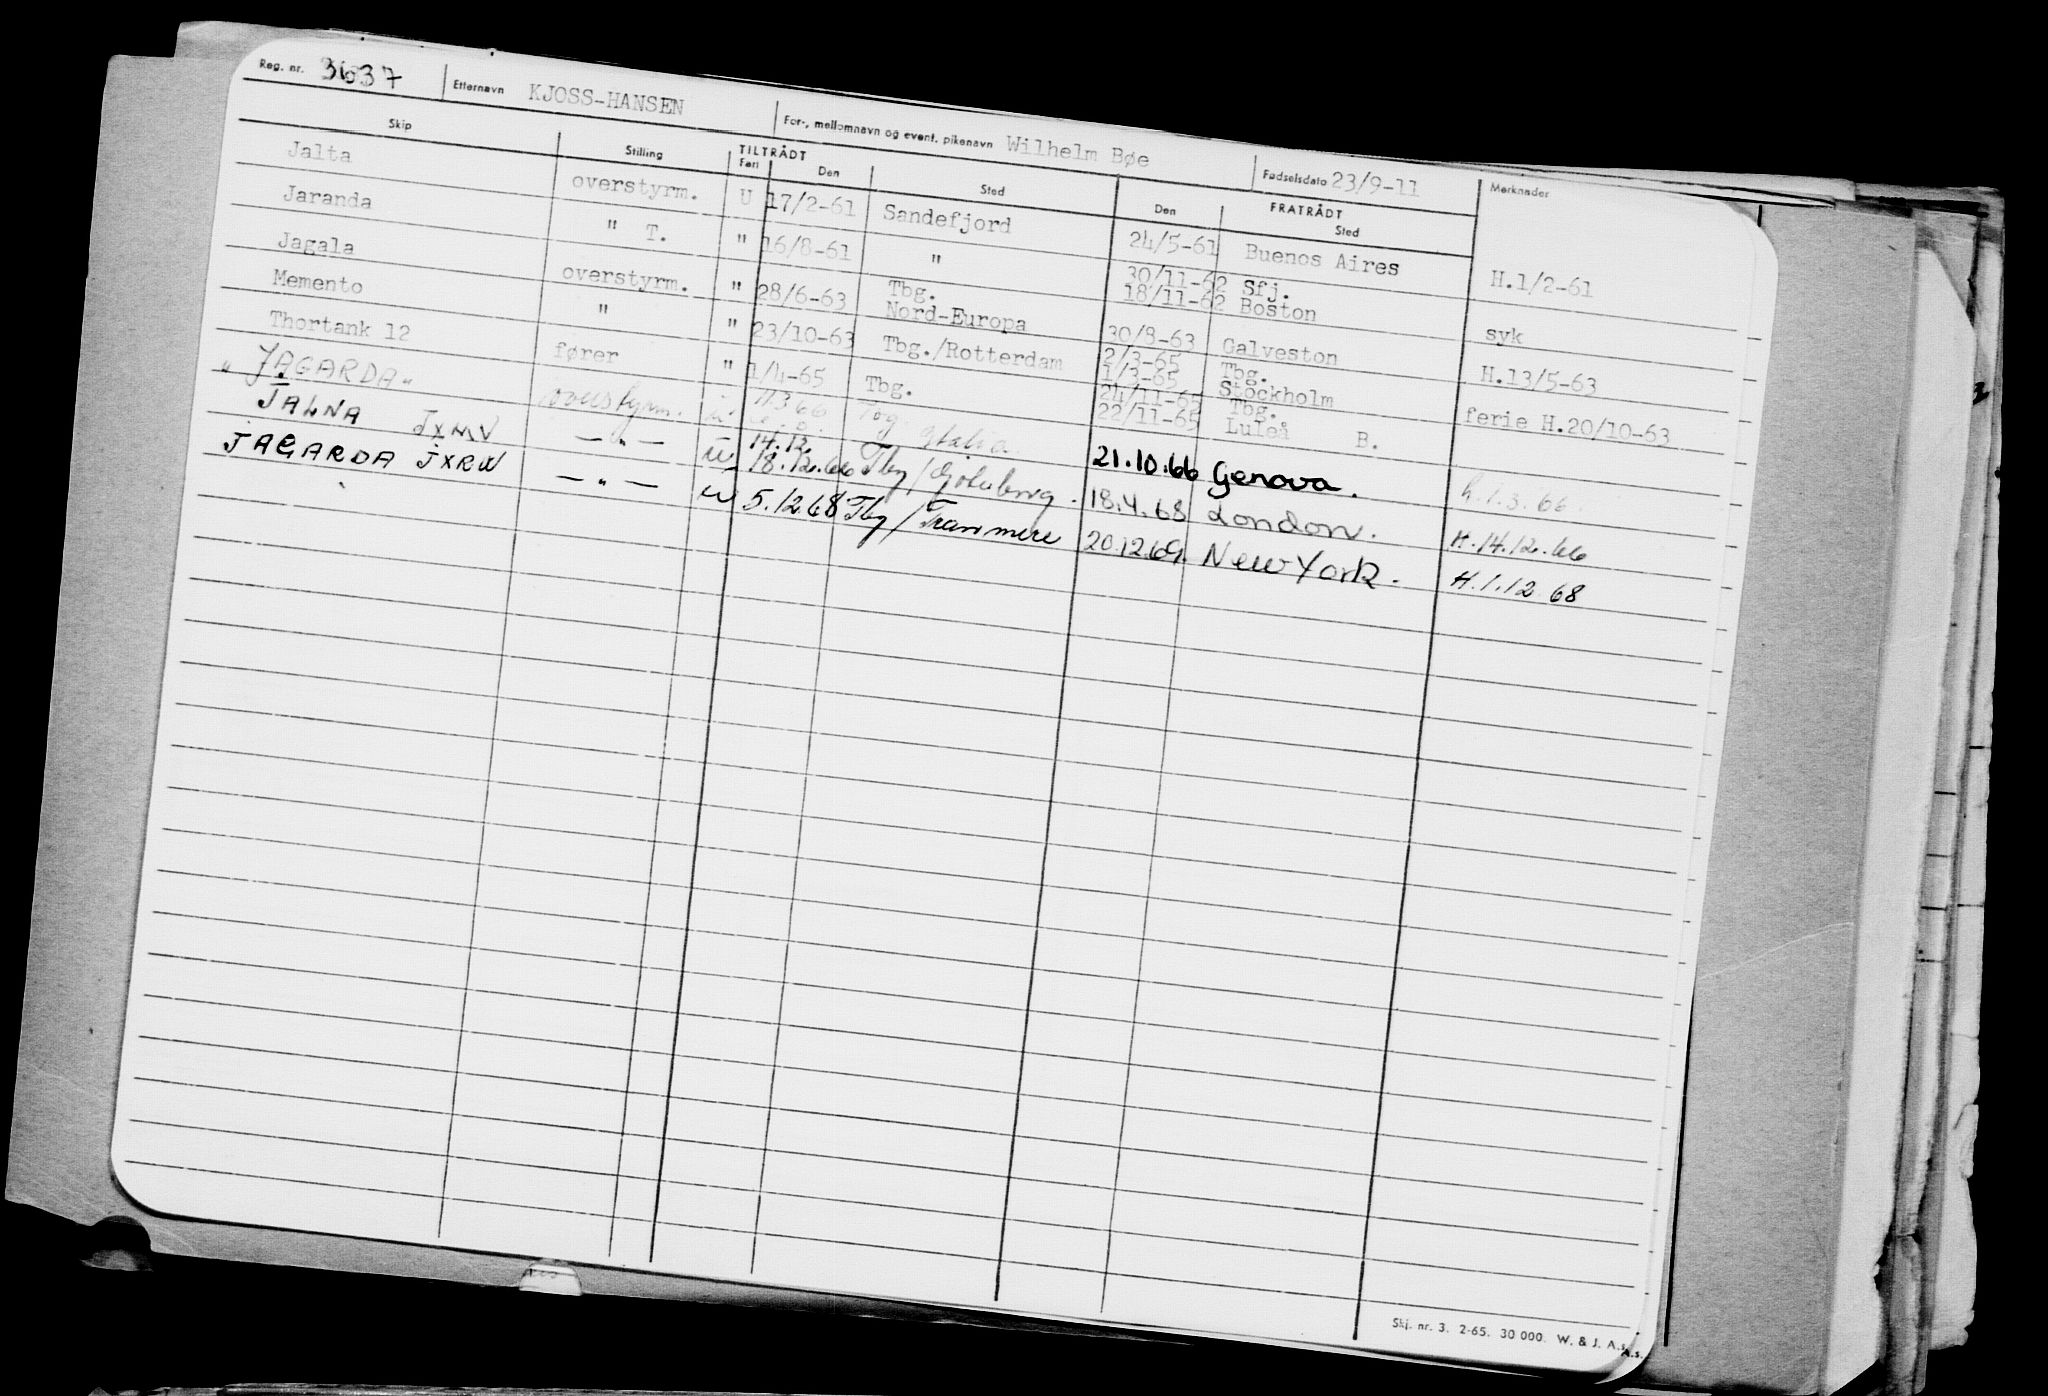 Reg. nr. 3637 Etternavn KJOSS-HANSEN For-, mellomnavn og event. pikenavn Wilhelm Bøe Fødselsdato 23/9-11 Merknader
Skip Stilling TILTRÅDT FRATRÅDT
Fart Den Sted Den Sted
Jalta overstyrm. U 17/2-61 Sandefjord 24/5-61 Buenos Aires H.1/2-61
Jaranda " T. " 16/8-61 " 30/11-62 Sfj.
18/11-62 Boston syk
Jagala overstyrm. " 28/6-63 Tbg. 30/8-63 Galveston H.13/5-63
Memento " " 23/10-63 Nord-Europa
Tbg./Rotterdam 2/3-65 Tbg.
1/3-65 Stockholm ferie H.20/10-63
Thortank 12 fører " 1/4-65 Tbg. 24/11-65 Tbg.
22/11-65 Luleå B.
"JAGARDA" overstyrm. u 21.10.66 Genova. h.1.3.66
JALNA JXMV — " — u 14.12.
18.12.66 Tbg/Göteborg. 18.4.68 London. H.14.12.66
JAGARDA JXRW — " — u 5.12.68 Tbg/Tranmere 20.12.69. New York. H.1.12.68
Skj. nr. 3. 2-65. 30 000. W. & J. A.s.